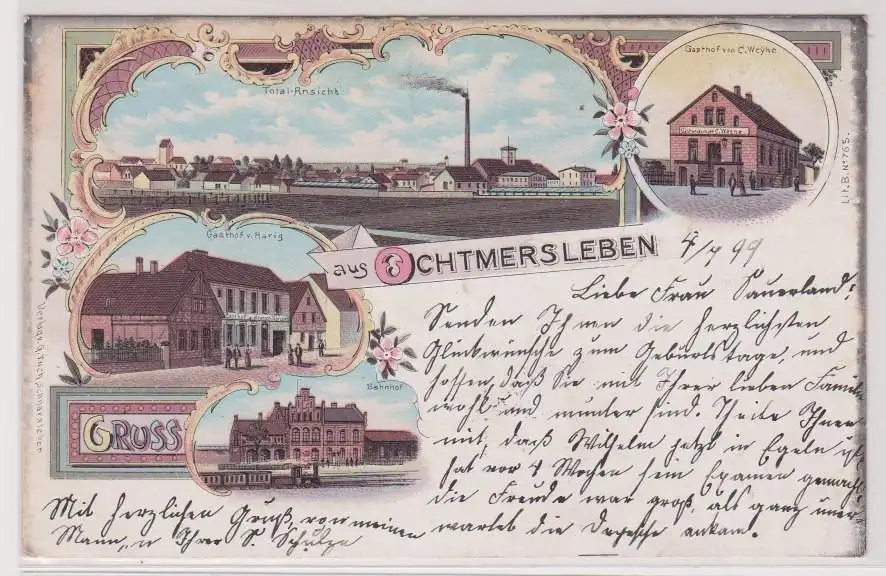 Total-Ansicht
Gasthof von C. Weyhe
Gastwirtschaft C. Weyhe
Lit. B. No 765.
Gasthof v. Harig
aus OCHTMERSLEBEN
Bahnhof
GRUSS
Verlag v. G. Tuch, Schnarsleben
4/7 99
Liebe Frau Sauerland!
Senden Ihnen die herzlichsten
Glückwünsche zum Geburtstage, und
hoffen, daß Sie mit Ihrer lieben Familie
wohl und munter sind. Theile Ihnen
mit, daß Wilhelm jetzt in Egeln ist
hat vor 4 Wochen sein Examen gemacht
die Freude war groß, als ganz uner-
wartet die Depesche ankam.
Mit herzlichen Gruß, von meinen
Mann, u Ihrer S. Schulze